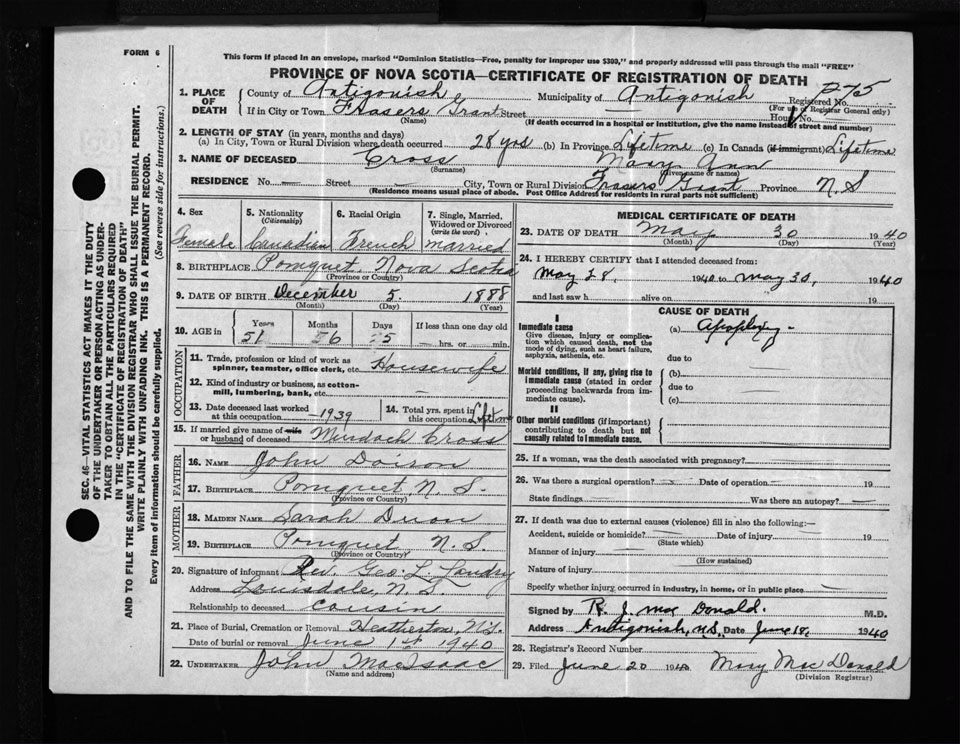 FORM 6
This form if placed in an envelope, marked "Dominion Statistics—Free, penalty for improper use $300," and properly addressed will pass through the mail "FREE"
PROVINCE OF NOVA SCOTIA—CERTIFICATE OF REGISTRATION OF DEATH
SEC. 46—VITAL STATISTICS ACT MAKES IT THE DUTY
OF THE UNDERTAKER OR PERSON ACTING AS UNDER-
TAKER TO OBTAIN ALL THE PARTICULARS REQUIRED
IN THE "CERTIFICATE OF REGISTRATION OF DEATH"
AND TO FILE THE SAME WITH THE DIVISION REGISTRAR WHO SHALL ISSUE THE BURIAL PERMIT.
WRITE PLAINLY WITH UNFADING INK. THIS IS A PERMANENT RECORD.
Every item of information should be carefully supplied. (See reverse side for instructions).
1. PLACE OF DEATH County of Antigonish Municipality of Antigonish Registered No.
(For use of Registrar General only)
If in City or Town Frasers Grant Street — House No. —
(Name) (If death occurred in a hospital or institution, give the name instead of street and number)
2. LENGTH OF STAY (in years, months and days)
(a) In City, Town or Rural Division where death occurred 28 yrs (b) In Province Lifetime (c) In Canada (if immigrant) Lifetime
3. NAME OF DECEASED Cross Mary Ann
(Surname) (Given name or names)
RESIDENCE No. — Street — City, Town or Rural Division Frasers Grant Province N. S
(Residence means usual place of abode. Post Office Address for residents in rural parts not sufficient)
4. Sex 5. Nationality (Citizenship) 6. Racial Origin 7. Single, Married, Widowed or Divorced (write the word)
Female Canadian French married
8. BIRTHPLACE Pomquet, Nova Scotia
(Province or Country)
9. DATE OF BIRTH December 5. 1888
(Month) (Day) (Year)
10. AGE in Years Months Days If less than one day old
51 hrs. or min.
OCCUPATION
11. Trade, profession or kind of work as spinner, teamster, office clerk, etc. Housewife
12. Kind of industry or business, as cotton-mill, lumbering, bank, etc.
13. Date deceased last worked at this occupation 1939
14. Total yrs. spent in this occupation Lifetime
15. If married give name of wife or husband of deceased Murdoch Cross
FATHER
16. Name John Doiron
17. Birthplace Pomquet, N. S.
(Province or Country)
MOTHER
18. Maiden Name Sarah
19. Birthplace Pomquet N. S.
(Province or Country)
20. Signature of informant Rev. Geo. L. Landry
Address Louisdale, N. S.
Relationship to deceased Cousin
21. Place of Burial, Cremation or Removal Heatherton, N.S.
Date of burial or removal June 1st 1940
22. UNDERTAKER John MacIsaac
(Name and address)
MEDICAL CERTIFICATE OF DEATH
23. DATE OF DEATH May 30 1940
(Month) (Day) (Year)
24. I HEREBY CERTIFY that I attended deceased from:
May 28, 1940 to May 30, 1940
and last saw h alive on 19
CAUSE OF DEATH
I
Immediate cause (a) Apoplexy -
Give disease, injury or complication which caused death, not the mode of dying, such as heart failure, asphyxia, asthenia, etc.
due to
Morbid conditions, if any, giving rise to immediate cause (stated in order proceeding backwards from immediate cause).
(b)
due to
(c)
II
Other morbid conditions (if important) contributing to death but not causally related to immediate cause.
25. If a woman, was the death associated with pregnancy? —
26. Was there a surgical operation? — Date of operation — 19
State findings — Was there an autopsy? —
27. If death was due to external causes (violence) fill in also the following:—
Accident, suicide or homicide? — Date of injury — 19
(State which)
Manner of injury —
(How sustained)
Nature of injury —
Specify whether injury occurred in industry, in home, or in public place —
Signed by R. J. MacDonald. M.D.
Address Antigonish, N.S. Date June 18, 1940
28. Registrar's Record Number
29. Filed June 20 1940 Mary MacDonald
(Division Registrar)